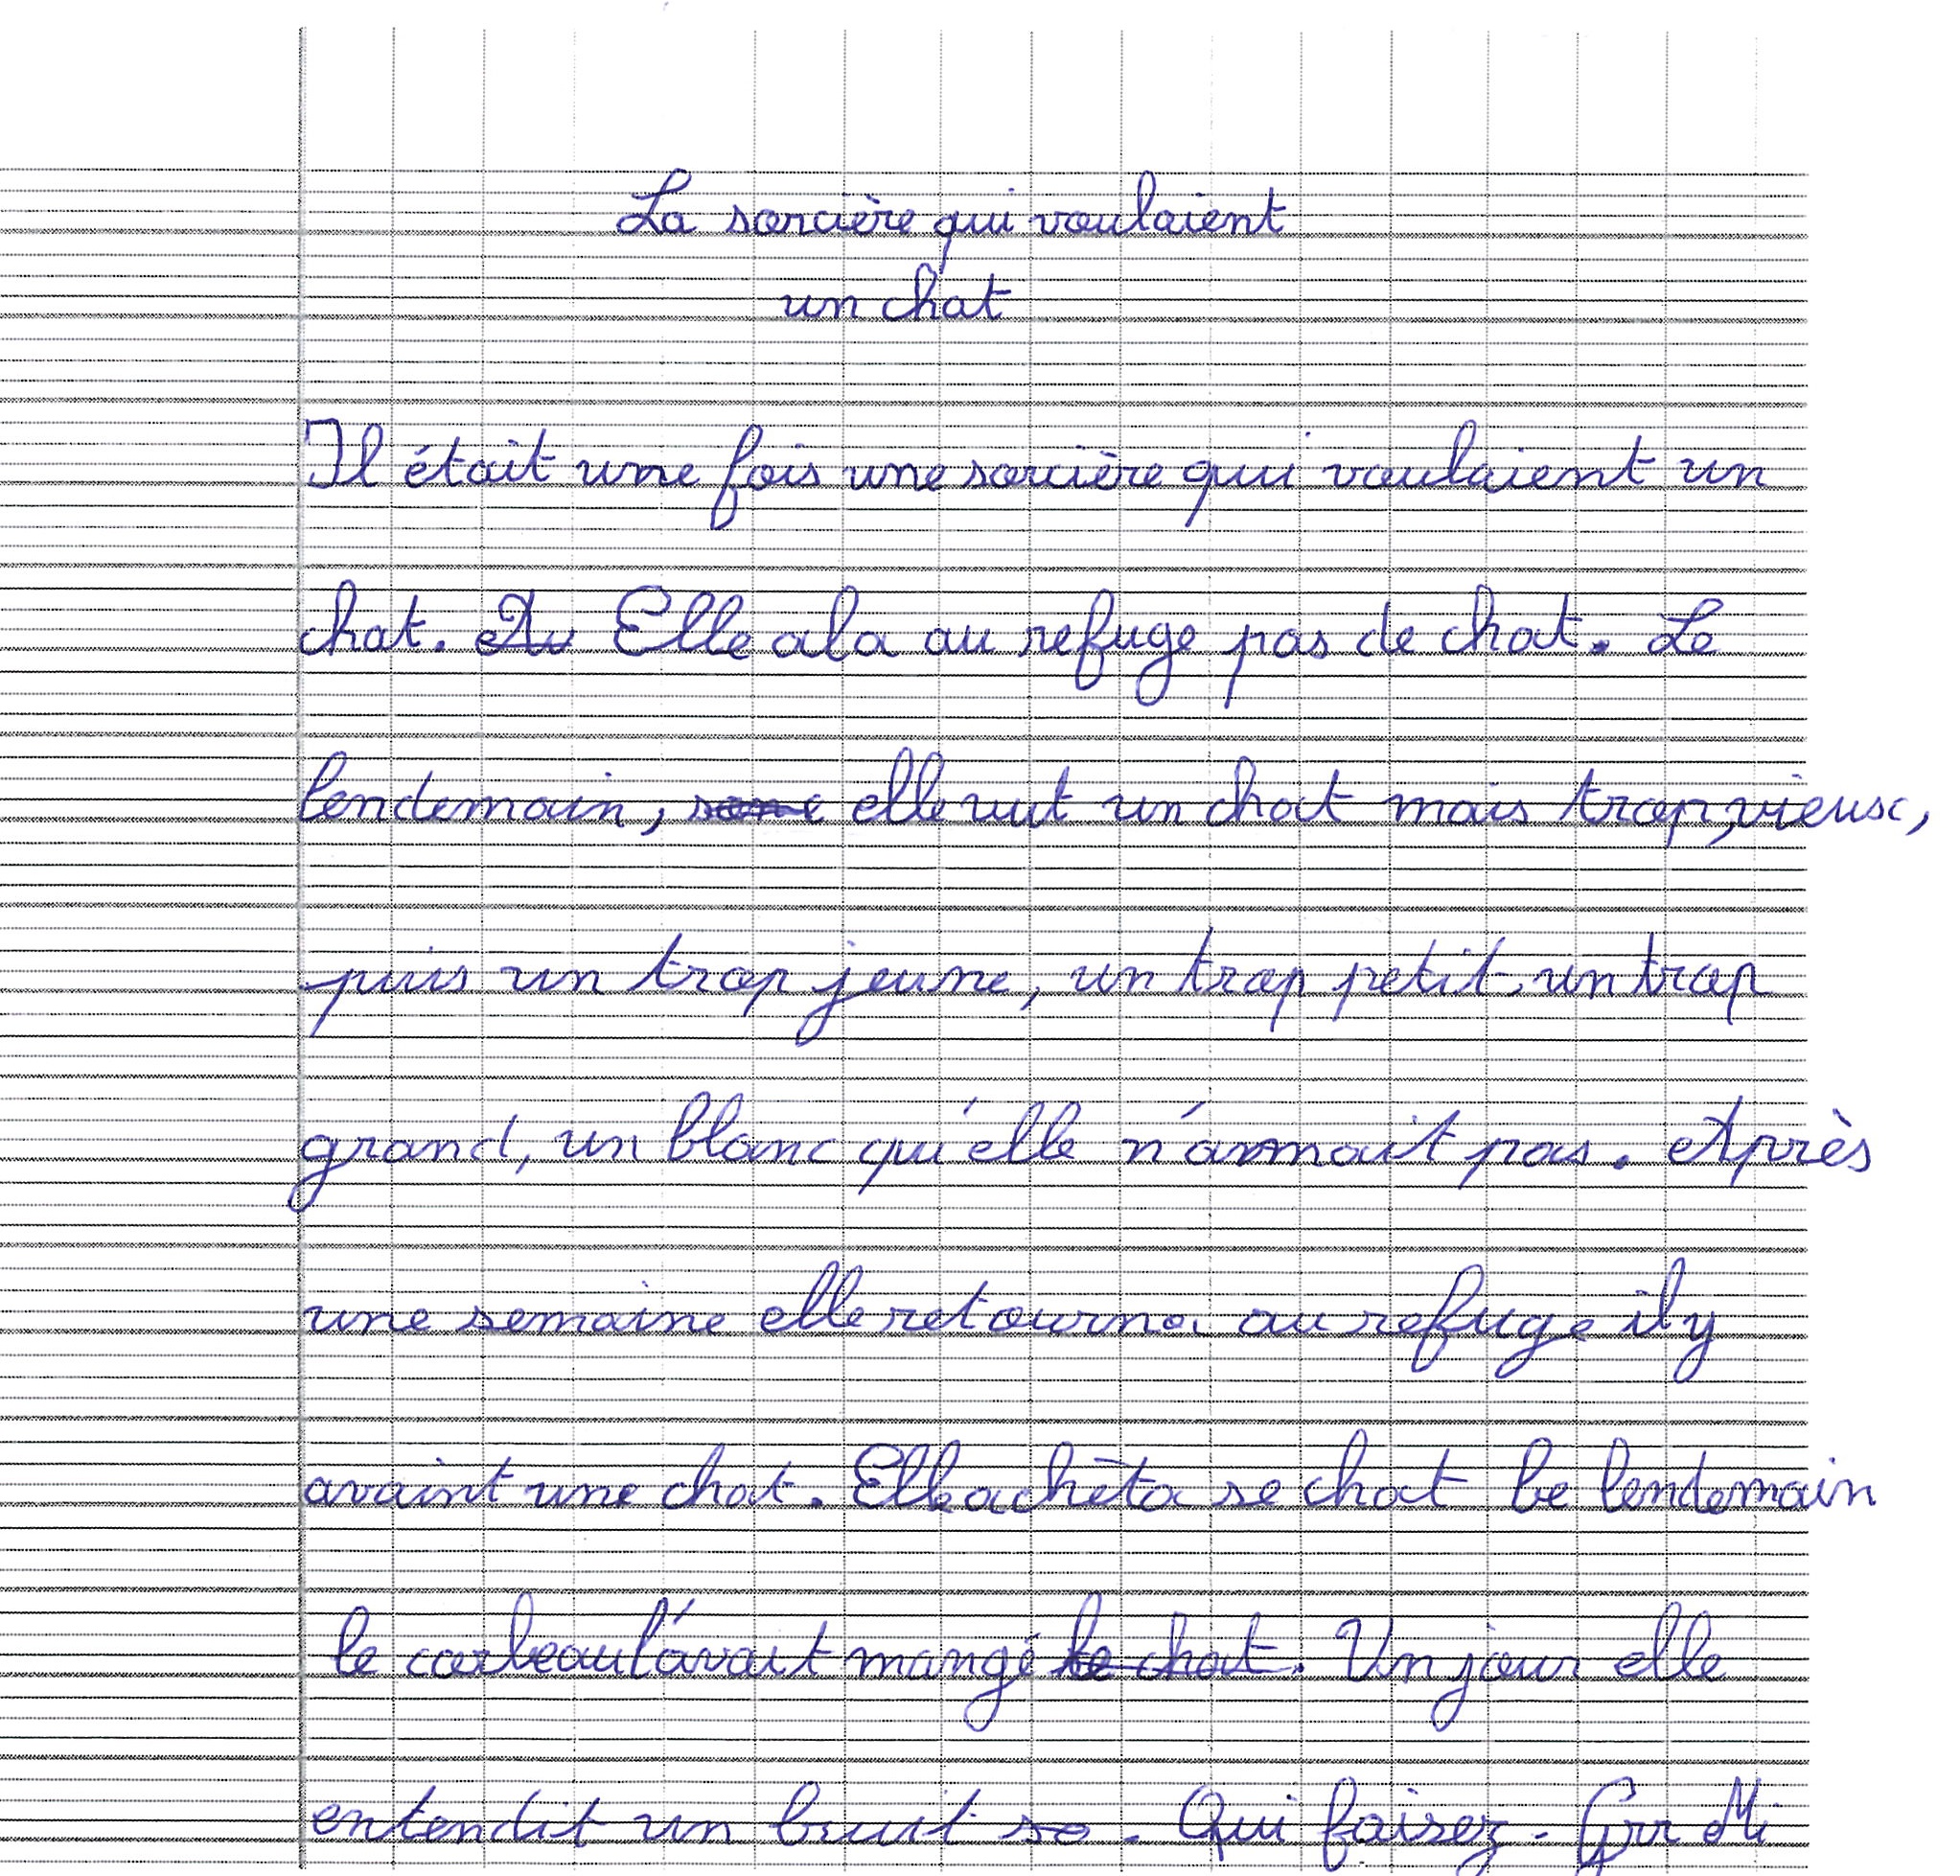 La sorcière qui voulaient
un chat
Il était une fois une sorcière qui voulaient un
chat. Elle ala au refuge pas de chat. Le
lendemain, elle vut un chat mais trop, vieux,
puis un trop jeune, un trop petit, un trop
grand, un blanc qu'elle n'aimait pas. Après
une semaine elle retourna au refuge il y
avaint une chat. Elle achèta se chat le lendemain
le corbeau l'avait mangé le chat. Un jour elle
entendit un bruit so. Qui faisez - Grr Mi